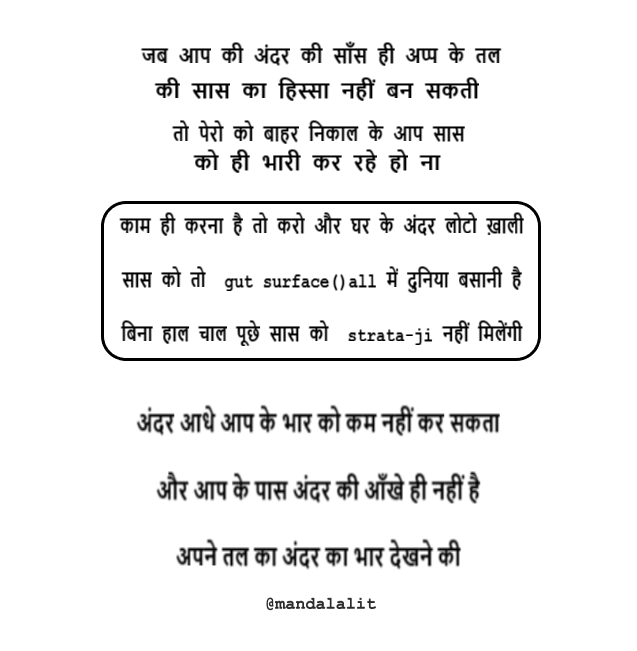 जब आप की अंदर की साँस ही अप्प के तल
की सास का हिस्सा नहीं बन सकती
तो पेरो को बाहर निकाल के आप सास
को ही भारी कर रहे हो ना
काम ही करना है तो करो और घर के अंदर लोटो ख़ाली
सास को तो gut surface()all में दुनिया बसानी है
बिना हाल चाल पूछे सास को strata-ji नहीं मिलेंगी
अंदर आधे आप के भार को कम नहीं कर सकता
और आप के पास अंदर की आँखे ही नहीं है
अपने तल का अंदर का भार देखने की
@mandalalit